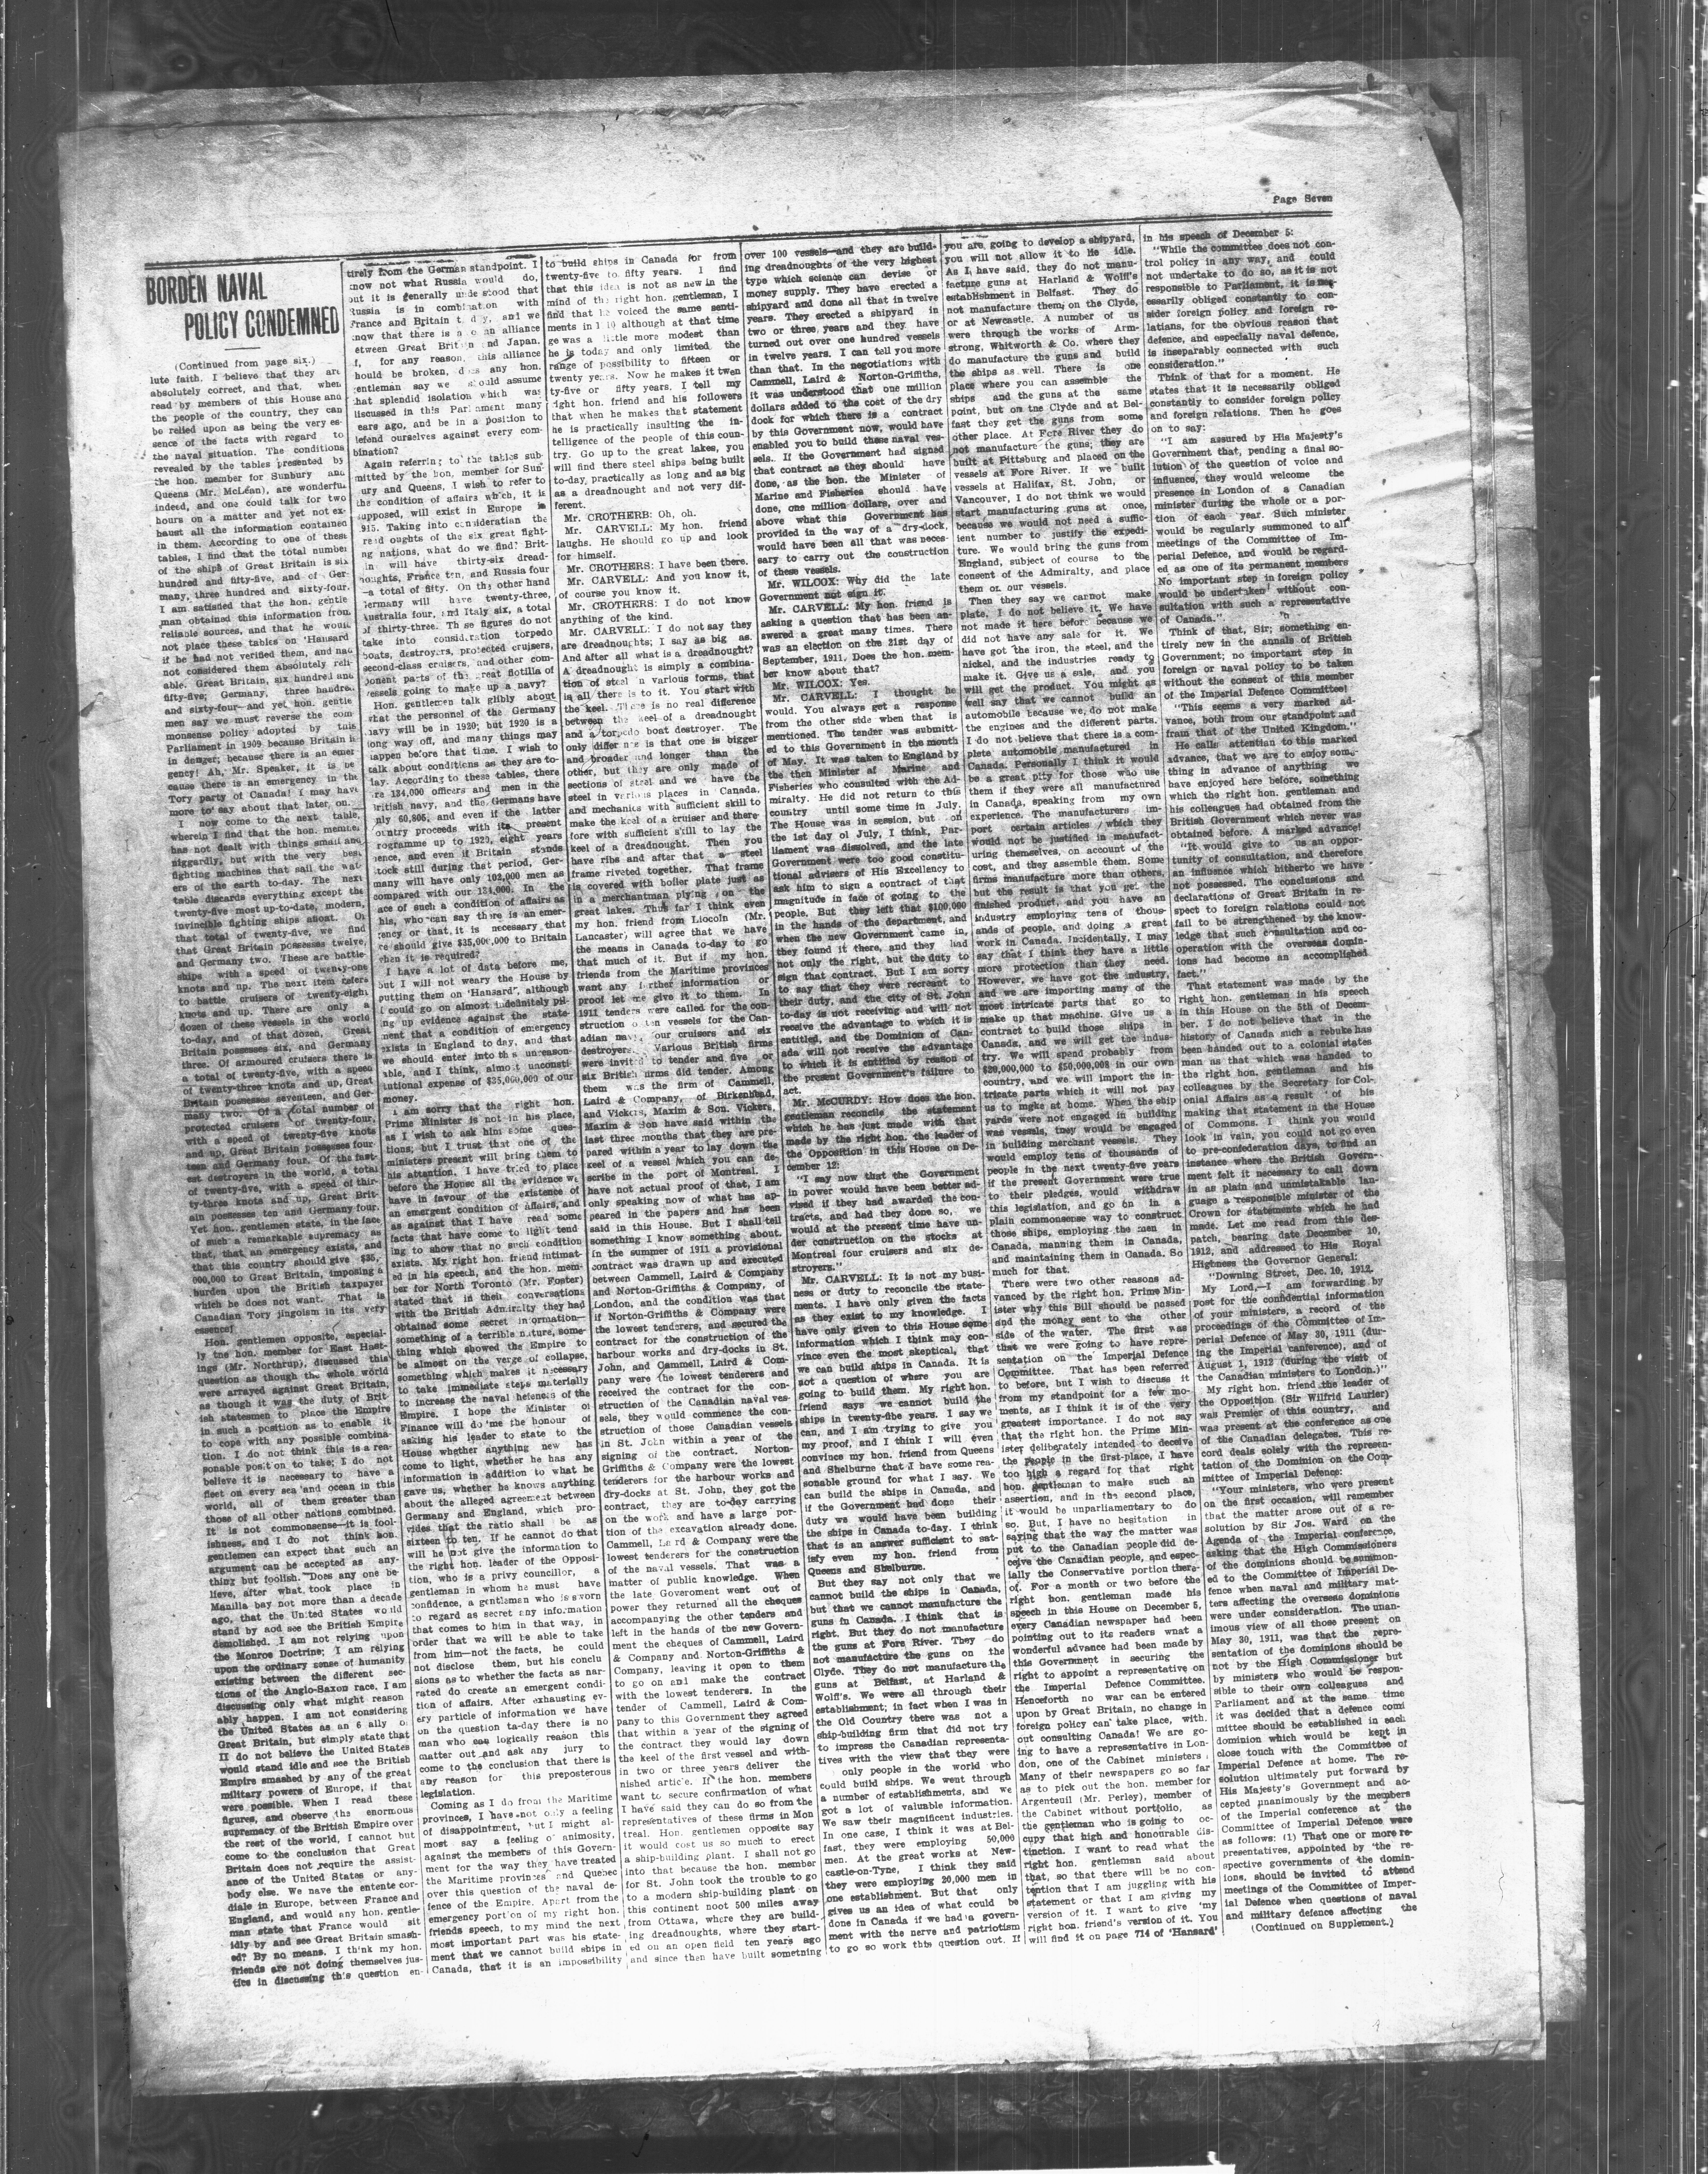 Page Seven
BORDEN NAVAL
POLICY CONDEMNED
(Continued from page six.)
lute faith. I believe that they are
absolutely correct, and that, when
read by members of this House and
the people of the country, they can
be relied upon as being the very es-
sence of the facts with regard to
the naval situation. The conditions
revealed by the tables presented by
the hon. member for Sunbury and
Queens (Mr. McLean), are wonderful
indeed, and one could talk for two
hours on a matter and yet not ex-
haust all the information contained
in them. According to one of these
tables, I find that the total number
of the ships of Great Britain is six
hundred and fifty-five, and of Ger-
many, three hundred and sixty-four.
I am satisfied that the hon. gentle
man obtained this information from
reliable sources, and that he would
not place these tables on 'Hansard
if he had not verified them, and had
not considered them absolutely reli-
able. Great Britain, six hundred and
fifty-five; Germany, three hundred
and sixty-four—and yet hon. gentle
men say we must reverse the com
monsense policy adopted by this
Parliament in 1909 because Britain is
in danger; because there is an emer
gency! Ah, Mr. Speaker, it is be
cause there is an emergency in the
Tory party of Canada! I may have
more to say about that later, on.
I now come to the next table,
wherein I find that the hon. member
has not dealt with things small and
niggardly, but with the very best
fighting machines that sail the wat-
ers of the earth to-day. The next
table discards everything except the
twenty-five most up-to-date, modern,
invincible fighting ships afloat. Of
that total of twenty-five, we find
that Great Britain possesses twelve,
and Germany two. These are battle-
ships with a speed of twenty-one
knots and up. The next item refers
to battle cruisers of twenty-eight
knots and up. There are only a
dozen of these vessels in the world
to-day, and of that dozen, Great
Britain possesses six, and Germany
three. Of armoured cruisers there is
a total of twenty-five, with a speed
of twenty-three knots and up, Great
Britain possesses seventeen, and Ger-
many two. Of a total number of
protected cruisers of twenty-four,
with a speed of twenty-five knots
and up, Great Britain possesses four-
teen and Germany four. Of the fast-
est destroyers in the world, a total
of twenty-five, with a speed of thir-
ty-three knots and up, Great Brit-
ain possesses ten and Germany four.
Yet hon. gentlemen state, in the face
of such a remarkable supremacy as
that, that an emergency exists, and
that this country should give $35,
000,000 to Great Britain, imposing a
burden upon the British taxpayer
which he does not want. That is
Canadian Tory jingoism in its very
essence!
Hon. gentlemen opposite, especial-
ly the hon. member for East Hast-
ings (Mr. Northrup), discussed this
question as though the whole world
were arrayed against Great Britain,
as though it was the duty of Brit-
ish statesmen to place the Empire
in such a position as to enable it
to cope with any possible combina-
tion. I do not think this is a rea-
sonable position to take; I do not
believe it is necessary to have a
fleet on every sea and ocean in this
world, all of them greater than
those of all other nations combined.
It is not commonsense—it is fool-
ishness, and I do not think hon.
gentlemen can expect that such an
argument can be accepted as any-
thing but foolish. Does any one be-
lieve, after what took place in
Manilla bay not more than a decade
ago, that the United States would
stand by and see the British Empire
demolished. I am not relying upon
the Monroe Doctrine; I am relying
upon the ordinary sense of humanity
existing between the different sec-
tions of the Anglo-Saxon race. I am
discussing only what might reason
ably happen. I am not considering
the United States as an 6 ally of
Great Britain, but simply state that
II do not believe the United States
would stand idle and see the British
Empire smashed by any of the great
military powers of Europe, if that
were possible. When I read these
figures, and observe the enormous
supremacy of the British Empire over
the rest of the world, I cannot but
come to the conclusion that Great
Britain does not require the assist-
ance of the United States or any-
body else. We nave the entente cor-
diale in Europe, between France and
England, and would any hon. gentle-
man state that France would sit
idly by and see Great Britain smash-
ed? By no means. I think my hon.
friends are not doing themselves jus-
tice in discussing this question en-
tirely from the German standpoint. I
know not what Russia would do,
but it is generally understood that
Russia is in combination with
France and Britain to-day, and we
know that there is a alliance
etween Great Britain and Japan.
f, for any reason, this alliance
hould be broken, does any hon.
gentleman say we should assume
that splendid isolation which was
discussed in this Parliament many
ears ago, and be in a position to
defend ourselves against every com-
bination?
Again referring to the tables sub-
mitted by the hon. member for Sun-
ury and Queens, I wish to refer to
the condition of affairs which, it is
upposed, will exist in Europe in
915. Taking into consideration the
read oughts of the six great fight-
ng nations, what do we find? Brit-
in will have thirty-six dread-
noughts, France ten, and Russia four
—a total of fifty. On the other hand
Germany will have twenty-three,
Australia four, and Italy six, a total
of thirty-three. These figures do not
take into consideration torpedo
boats, destroyers, protected cruisers,
second-class cruisers, and other com-
ponent parts of the great flotilla of
vessels going to make up a navy?
Hon. gentlemen talk glibly about
what the personnel of the Germany
navy will be in 1920; but 1920 is a
long way off, and many things may
happen before that time. I wish to
talk about conditions as they are to-
day. According to these tables, there
re 134,000 officers and men in the
British navy, and the Germans have
nly 60,805, and even if the latter
ountry proceeds with its present
rogramme up to 1920, eight years
ence, and even if Britain stands
stock still during that period, Ger-
many will have only 102,000 men as
compared with our 134,000. In the
ace of such a condition of affairs as
this, who can say there is an emer-
gency or that it is necessary that
we should give $35,000,000 to Britain
when it is required?
I have a lot of data before me,
but I will not weary the House by
putting them on 'Hansard', although
I could go on almost indefinitely pil-
ing up evidence against the state-
ment that a condition of emergency
exists in England to-day, and that
we should enter into the unreason-
able, and I think, almost unconsti-
tutional expense of $35,000,000 of our
money.
I am sorry that the right hon.
Prime Minister is not in his place,
as I wish to ask him some ques-
tions; but I trust that one of the
ministers present will bring them to
his attention. I have tried to place
before the House all the evidence we
have in favour of the existence of
an emergent condition of affairs, and
as against that I have read some
facts that have come to light tend
ing to show that no such condition
exists. My right hon. friend intimat-
ed in his speech, and the hon. mem-
ber for North Toronto (Mr. Foster)
stated that in their conversations
with the British Admiralty they had
obtained some secret information—
something of a terrible nature, some-
thing which showed the Empire to
be almost on the verge of collapse,
something which makes it necessary
to take immediate steps materially
to increase the naval hefences of the
Empire. I hope the Minister of
Finance will do me the honour of
asking his leader to state to the
House whether anything new has
come to light, whether he has any
information in addition to what he
gave us, whether he knows anything
about the alleged agreement between
Germany and England, which pro-
vides that the ratio shall be as
sixteen to ten. If he cannot do that
will he not give the information to
the right hon. leader of the Opposi-
tion, who is a privy councillor, a
gentleman in whom he must have
confidence, a gentleman who is sworn
to regard as secret any information
that comes to him in that way, in
order that we will be able to take
from him—not the facts, he could
not disclose them, but his conclu
sions as to whether the facts as nar-
rated do create an emergent condi-
tion of affairs. After exhausting ev-
ery particle of information we have
on the question ta-day there is no
man who can logically reason this
matter out and ask any jury to
come to the conclusion that there is
any reason for this preposterous
legislation.
Coming as I do from the Maritime
provinces, I have not only a feeling
of disappointment, but I might al-
most say a feeling of animosity,
against the members of this Govern-
ment for the way they have treated
the Maritime provinces and Quebec
over this question of the naval de-
fence of the Empire. Apart from the
emergency portion of my right hon.
friends speech, to my mind the next
most important part was his state-
ment that we cannot build ships in
Canada, that it is an impossibility
to build ships in Canada for from
twenty-five to fifty years. I find
that this idea is not as new in the
mind of the right hon. gentleman, I
find that he voiced the same senti-
ments in 1910 although at that time
ge was a little more modest than
he is today and only limited the
range of possibility to fifteen or
twenty years. Now he makes it twen
ty-five or fifty years. I tell my
right hon. friend and his followers
that when he makes that statement
he is practically insulting the in-
telligence of the people of this coun-
try. Go up to the great lakes, you
will find there steel ships being built
to-day, practically as long and as big
as a dreadnought and not very dif-
ferent.
Mr. CROTHERB: Oh, oh.
Mr. CARVELL: My hon. friend
laughs. He should go up and look
for himself.
Mr. CROTHERS: I have been there.
Mr. CARVELL: And you know it,
of course you know it.
Mr. CROTHERS: I do not know
anything of the kind.
Mr. CARVELL: I do not say they
are dreadnoughts; I say as big as.
And after all what is a dreadnought?
A dreadnought is simply a combina-
tion of steel in various forms, that
is all there is to it. You start with
the keel. There is no real difference
between the keel of a dreadnought
and a torpedo boat destroyer. The
only difference is that one is bigger
and broader and longer than the
other, but they are only made of
sections of steel and we have the
steel in various places in Canada,
and mechanics with sufficient skill to
make the keel of a cruiser and there-
fore with sufficient skill to lay the
keel of a dreadnought. Then you
have ribs and after that a steel
frame riveted together. That frame
is covered with boiler plate just as
in a merchantman plying on the
great lakes. Thus far I think even
my hon. friend from Liocoln (Mr.
Lancaster) will agree that we have
the means in Canada to-day to go
that much of it. But if my hon.
friends from the Maritime provinces
want any further information or
proof let me give it to them. In
1911 tenders were called for the con-
struction of ten vessels for the Can-
adian navy, four cruisers and six
destroyers. Various British firms
were invited to tender and five or
six British firms did tender. Among
them was the firm of Cammell,
Laird & Company, of Birkenhead,
and Vickers, Maxim & Son. Vickers,
Maxim & Son have said within the
last three months that they are pre-
pared within a year to lay down the
keel of a vessel which you can de-
scribe in the port of Montreal. I
have not actual proof of that, I am
only speaking now of what has ap-
peared in the papers and has been
said in this House. But I shall tell
something I know something about.
In the summer of 1911 a provisional
contract was drawn up and executed
between Cammell, Laird & Company
and Norton-Griffiths & Company, of
London, and the condition was that
if Norton-Griffiths & Company were
the lowest tenderers, and secured the
contract for the construction of the
harbour works and dry-docks in St.
John, and Cammell, Laird & Com-
pany were the lowest tenderers and
received the contract for the con-
struction of the Canadian naval ves-
sels, they would commence the con-
struction of those Canadian vessels
in St. John within a year of the
signing of the contract. Norton-
Griffiths & Company were the lowest
tenderers for the harbour works and
dry-docks at St. John, they got the
contract, they are to-day carrying
on the work and have a large por-
tion of the excavation already done.
Cammell, Laird & Company were the
lowest tenderers for the construction
of the naval vessels. That was a
matter of public knowledge. When
the late Goveroment went out of
power they returned all the cheques
accompanying the other tenders and
left in the hands of the new Govern-
ment the cheques of Cammell, Laird
& Company and Norton-Griffiths &
Company, leaving it open to them
to go on and make the contract
with the lowest tenderers. In the
tender of Cammell, Laird & Com-
pany to this Government they agreed
that within a year of the signing of
the contract they would lay down
the keel of the first vessel and with-
in two or three years deliver the
nished article. If the hon. members
want to secure confirmation of what
I have said they can do so from the
representatives of these firms in Mon
treal. Hon. gentlemen opposite say
it would cost us so much to erect
a ship-building plant. I shall not go
into that because the hon. member
for St. John took the trouble to go
to a modern ship-building plant on
this continent noot 500 miles away
from Ottawa, where they are build-
ing dreadnoughts, where they start-
ed on an open field ten years ago
and since then have built something
over 100 vessels—and they are build-
ing dreadnoughts of the very highest
type which science can devise or
money supply. They have erected a
shipyard and done all that in twelve
years. They erected a shipyard in
two or three years and they have
turned out over one hundred vessels
in twelve years. I can tell you more
than that. In the negotiations with
Cammell, Laird & Norton-Griffiths,
it was understood that one million
dollars added to the cost of the dry
dock for which there is a contract
by this Government now, would have
enabled you to build these naval ves-
sels. If the Government had signed
that contract as they should have
done, as the hon. the Minister of
Marine and Fisheries should have
done, one million dollars, over and
above what this Government has
provided in the way of a dry-dock,
would have been all that was neces-
sary to carry out the construction
of these vessels.
Mr. WILCOX: Why did the late
Government not sign it?
Mr. CARVELL: My hon. friend is
asking a question that has been an-
swered a great many times. There
was an election on the 21st day of
September, 1911. Does the hon. mem-
ber know about that?
Mr. WILCOX: Yes.
Mr. CARVELL: I thought he
would. You always get a response
from the other side when that is
mentioned. The tender was submitt-
ed to this Government in the month
of May. It was taken to England by
the then Minister of Marine and
Fisheries who consulted with the Ad-
miralty. He did not return to this
country until some time in July.
The House was in session, but on
the 1st day of July, I think, Par-
liament was dissolved, and the late
Government were too good constitu-
tional advisers of His Excellency to
ask him to sign a contract of that
magnitude in face of going to the
people. But they left that $100,000
in the hands of the department, and
when the new Government came in,
they found it there, and they had
not only the right, but the duty to
sign that contract. But I am sorry
to say that they were recreant to
their duty, and the city of St. John
to-day is not receiving and will not
receive the advantage to which it is
entitled, and the Dominion of Can-
ada will not receive the advantage
to which it is entitled by reason of
the present Government's failure to
act.
Mr. McCURDY: How does the hon.
gentleman reconcile the statement
which he has just made with that
made by the right hon. the leader of
the Opposition in this House on De-
cember 12:
"I say now that the Government
in power would have been better ad-
vised if they had awarded the con-
tracts, and had they done so, we
would at the present time have un-
der construction on the stocks at
Montreal four cruisers and six de-
stroyers."
Mr. CARVELL: It is not my busi-
ness or duty to reconcile the state-
ments. I have only given the facts
as they exist to my knowledge. I
have only given to this House some
information which I think may con-
vince even the most skeptical, that
we can build ships in Canada. It is
not a question of where you are
going to build them. My right hon.
friend says we cannot build the
ships in twenty-fibe years. I say we
can, and I am trying to give you
my proof, and I think I will even
convince my hon. friend from Queens
and Shelburne that I have some rea-
sonable ground for what I say. We
can build the ships in Canada, and
if the Government had done their
duty we would have been building
the ships in Canada to-day. I think
that is an answer sufficient to sat-
isfy even my hon. friend from
Queens and Shelburne.
But they say not only that we
cannot build the ships in Canada,
but that we cannot manufacture the
guns in Canada. I think that is
right. But they do not manufacture
the guns at Fore River. They do
not manufacture the guns on the
Clyde. They do not manufacture the
guns at Belfast, at Harland &
Wolff's. We were all through their
establishment; in fact when I was in
the Old Country there was not a
ship-building firm that did not try
to impress the Canadian representa-
tives with the view that they were
only people in the world who
could build ships. We went through
a number of establishments, and we
got a lot of valuable information.
We saw their magnificent industries.
In one case, I think it was at Bel-
fast, they were employing 50,000
men. At the great works at New-
castle-on-Tyne, I think they said
they were employing 20,000 men in
one establishment. But that only
gives us an idea of what could be
done in Canada if we had a govern-
ment with the nerve and patriotism
to go so work this question out. If
you are going to develop a shipyard,
you will not allow it to lie idle.
As I have said, they do not manu-
facture guns at Harland & Wolff's
establishment in Belfast. They do
not manufacture them on the Clyde,
or at Newcastle. A number of us
were through the works of Arm-
strong, Whitworth & Co. where they
do manufacture the guns and build
the ships as well. There is one
place where you can assemble the
ships and the guns at the same
point, but on the Clyde and at Bel-
fast they get the guns from some
other place. At Fore River they do
not manufacture the guns; they are
built at Pittsburg and placed on the
vessels at Fore River. If we built
vessels at Halifax, St. John, or
Vancouver, I do not think we would
start manufacturing guns at once,
because we would not need a suffic-
ient number to justify the expedi-
ture. We would bring the guns from
England, subject of course to the
consent of the Admiralty, and place
them on our vessels.
Then they say we cannot make
plate. I do not believe it. We have
not made it here before because we
did not have any sale for it. We
have got the iron, the steel, and the
nickel, and the industries ready to
make it. Give us a sale, and you
will get the product. You might as
well say that we cannot build an
automobile because we do not make
the engines and the different parts.
I do not believe that there is a com-
plete automobile manufactured in
Canada. Personally I think it would
be a great pity for those who use
them if they were all manufactured
in Canada, speaking from my own
experience. The manufacturers im-
port certain articles which they
would not be justified in manufact-
uring themselves, on account of the
cost, and they assemble them. Some
firms manufacture more than others,
but the result is that you get the
finished product, and you have an
industry employing tens of thous-
ands of people, and doing a great
work in Canada. Incidentally, I may
say that I think they have a little
more protection than they need.
However, we have got the industry,
and we are importing many of the
most intricate parts that go to
make up that machine. Give us a
contract to build those ships in
Canada, and we will get the indus-
try. We will spend probably from
$20,000,000 to $50,000,008 in our own
country, and we will import the in-
tricate parts which it will not pay
us to make at home. When the ship
yards were not engaged in building
was vessels, they would be engaged
in building merchant vessels. They
would employ tens of thousands of
people in the next twenty-five years
if the present Government were true
to their pledges, would withdraw
this legislation, and go on in a
plain commonsense way to construct
those ships, employing the men in
Canada, manning them in Canada,
and maintaining them in Canada. So
much for that.
There were two other reasons ad-
vanced by the right hon. Prime Min-
ister why this Bill should be passed
and the money sent to the other
side of the water. The first was
that we were going to have repre-
sentation on the Imperial Defence
Committee. That has been referred
to before, but I wish to discuss it
from my standpoint for a few mo-
ments, as I think it is of the very
greatest importance. I do not say
that the right hon. the Prime Min-
ister deliberately intended to deceive
the people in the first-place, I have
too high a regard for that right
hon. gentleman to make such an
assertion, and in the second place,
it would be unparliamentary to do
so. But, I have no hesitation in
saying that the way the matter was
put to the Canadian people did de-
ceive the Canadian people, and espec-
ially the Conservative portion there-
of. For a month or two before the
right hon. gentleman made his
speech in this House on December 5,
every Canadian newspaper had been
pointing out to its readers what a
wonderful advance had been made by
this Government in securing the
right to appoint a representative on
the Imperial Defence Committee.
Henceforth no war can be entered
upon by Great Britain, no change in
foreign policy can take place, with-
out consulting Canada! We are go-
ing to have a representative in Lon-
don, one of the Cabinet ministers.
Many of their newspapers go so far
as to pick out the hon. member for
Argenteuil (Mr. Perley), member of
the Cabinet without portfolio, as
the gentleman who is going to oc-
cupy that high and honourable dis-
tinction. I want to read what the
right hon. gentleman said about
that, so that there will be no con-
tention that I am juggling with his
statement or that I am giving my
version of it. I want to give 'my
right hon. friend's version of it. You
will find it on page 714 of 'Hansard'
in his speech of December 5:
"While the committee does not con-
trol policy in any way, and could
not undertake to do so, as it is not
responsible to Parliament, it is nec-
essarily obliged constantly to con-
sider foreign policy and foreign re-
lations, for the obvious reason that
defence, and especially naval defence,
is inseparably connected with such
consideration."
Think of that for a moment. He
states that it is necessarily obliged
constantly to consider foreign policy
and foreign relations. Then he goes
on to say:
"I am assured by His Majesty's
Government that, pending a final so-
lution of the question of voice and
influence, they would welcome the
presence in London of a Canadian
minister during the whole or a por-
tion of each year. Such minister
would be regularly summoned to all
meetings of the Committee of Im-
perial Defence, and would be regard-
ed as one of its permanent members
No important step in foreign policy
would be undertaken without con-
sultation with such a representative
of Canada."
Think of that, Sir; something en-
tirely new in the annals of British
Government; no important step in
foreign or naval policy to be taken
without the consent of this member
of the Imperial Defence Committee!
"This seems a very marked ad-
vance, both from our standpoint and
fram that of the United Kingdom."
He calls attention to this marked
advance, that we are to enjoy some-
thing in advance of anything we
have enjoyed here before, something
which the right hon. gentleman and
his colleagues had obtained from the
British Government which never was
obtained before. A marked advance!
"It would give to us an oppor-
tunity of consultation, and therefore
an influence which hitherto we have
not possessed. The conclusions and
declarations of Great Britain in re-
spect to foreign relations could not
fail to be strengthened by the know-
ledge that such consultation and co-
operation with the overseas domin-
ions had become an accomplished
fact."
That statement was made by the
right hon. gentleman in his speech
in this House on the 5th of Decem-
ber. I do not believe that in the
history of Canada such a rebuke has
been handed out to a colonial states
man as that which was handed to
the right hon. gentleman and his
colleagues by the Secretary for Col-
onial Affairs as a result of his
making that statement in the House
of Commons. I think you would
look in vain, you could not go even
to pre-confederation days, to find an
instance where the British Govern-
ment felt it necessary to call down
in as plain and unmistakable lan-
guage a responsible minister of the
Crown for statements which he had
made. Let me read from this des-
patch, bearing date December 10,
1912, and addressed to His Royal
Highness the Governor General:
"Downing Street, Dec. 10, 1912.
My Lord,—I am forwarding by
post for the confidential information
of your ministers, a record of the
proceedings of the Committee of Im-
perial Defence of May 30, 1911 (dur-
ing the Imperial conference), and of
August 1, 1912 (during the visit of
the Canadian ministers to London.)"
My right hon. friend the leader of
the Opposition (Sir Wilfrid Laurier)
was Premier of this country, and
was present at the conference as one
of the Canadian delegates. This re-
cord deals solely with the represen-
tation of the Dominion on the Com-
mittee of Imperial Defence:
"Your ministers, who were present
on the first occasion, will remember
that the matter arose out of a re-
solution by Sir Jos. Ward on the
Agenda of the Imperial conference,
asking that the High Commissioners
of the dominions should be summon-
ed to the Committee of Imperial De-
fence when naval and military mat-
ters affecting the overseas dominions
were under consideration. The unan-
imous view of all those present on
May 30, 1911, was that the repre-
sentation of the dominions should be
not by the High Commissioner but
by ministers who would be respon-
sible to their own colleagues and
Parliament and at the same time
it was decided that a defence comi
mittee should be established in each
dominion which would be kept in
close touch with the Committee of
Imperial Defence at home. The re-
solution ultimately put forward by
His Majesty's Government and ac-
cepted unanimously by the members
of the Imperial conference at the
Committee of Imperial Defence were
as follows: (1) That one or more re-
presentatives, appointed by the re-
spective governments of the domin-
ions, should be invited to attend
meetings of the Committee of Imper-
ial Defence when questions of naval
and military defence affecting the
(Continued on Supplement.)